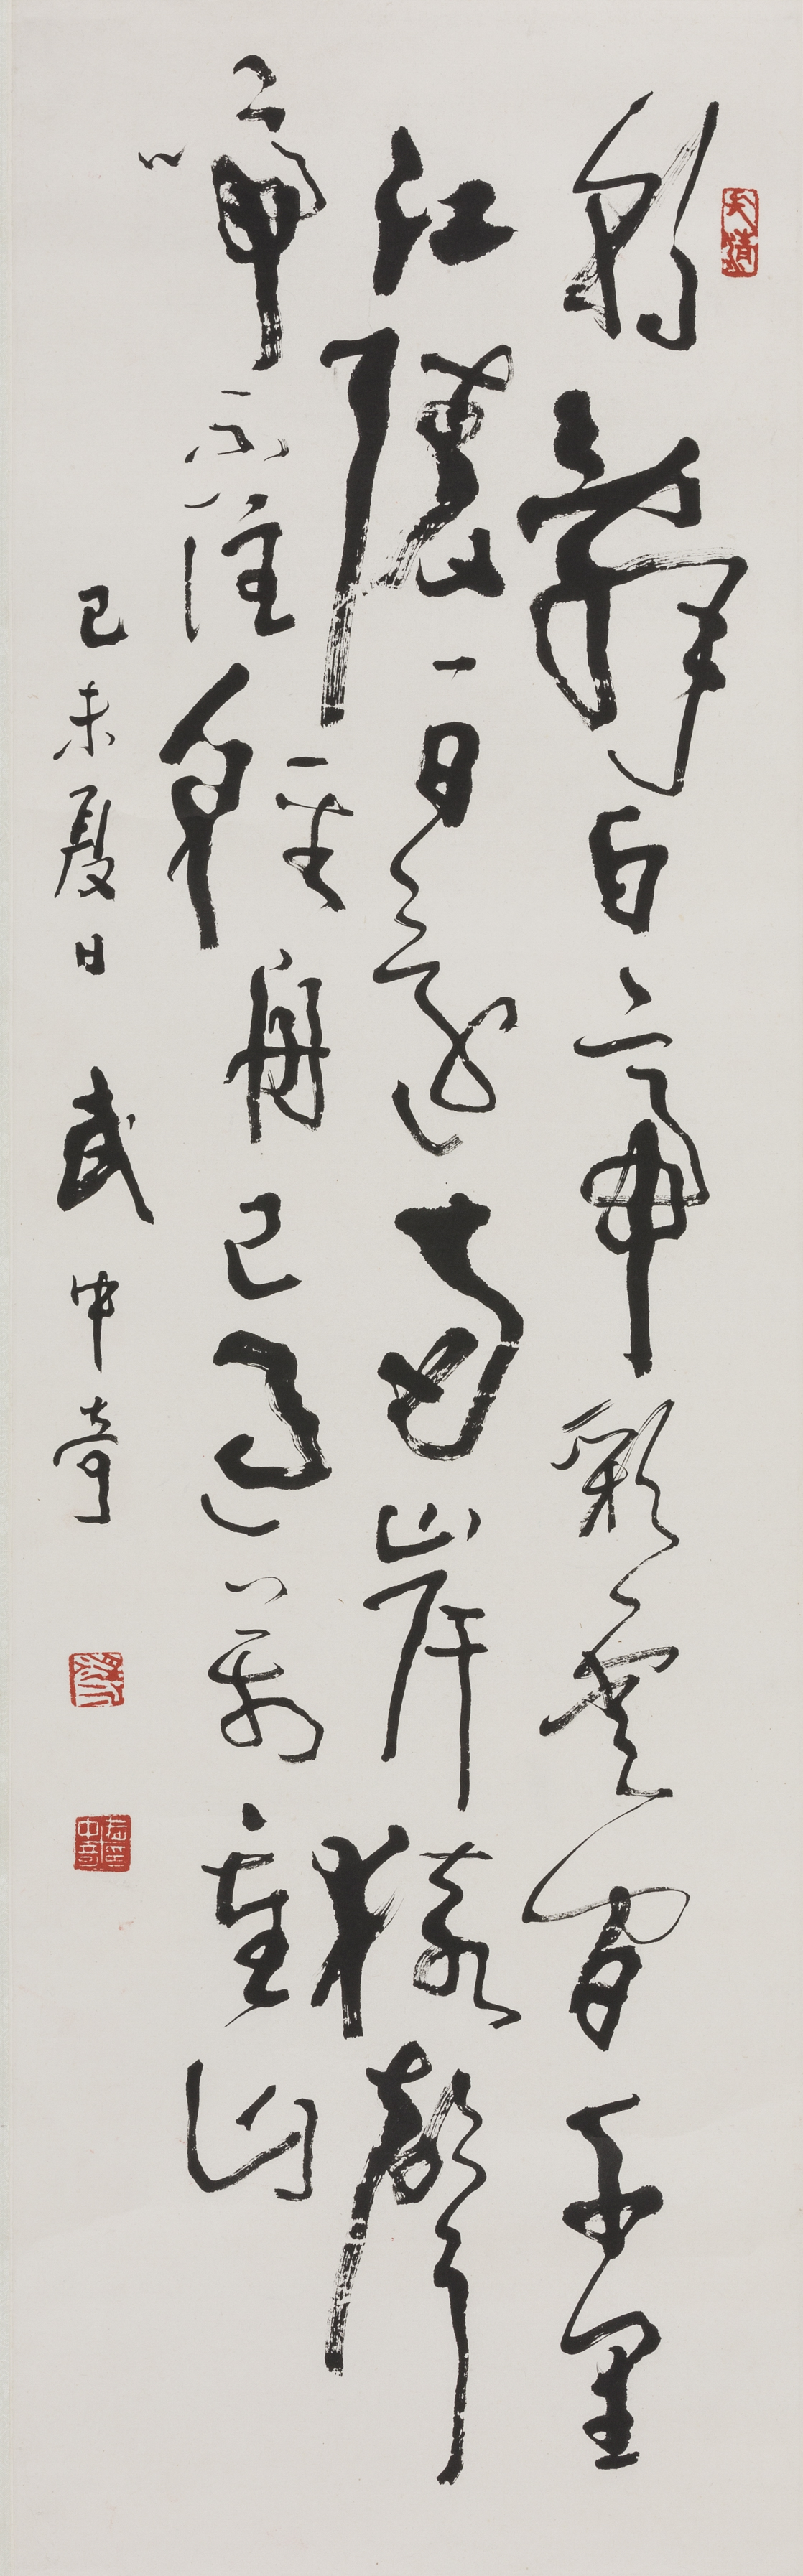 朝辭白帝彩雲間千里
江陵一日還兩岸猿聲
啼不住輕舟已過萬重山
己未夏日 武中奇
武印中奇